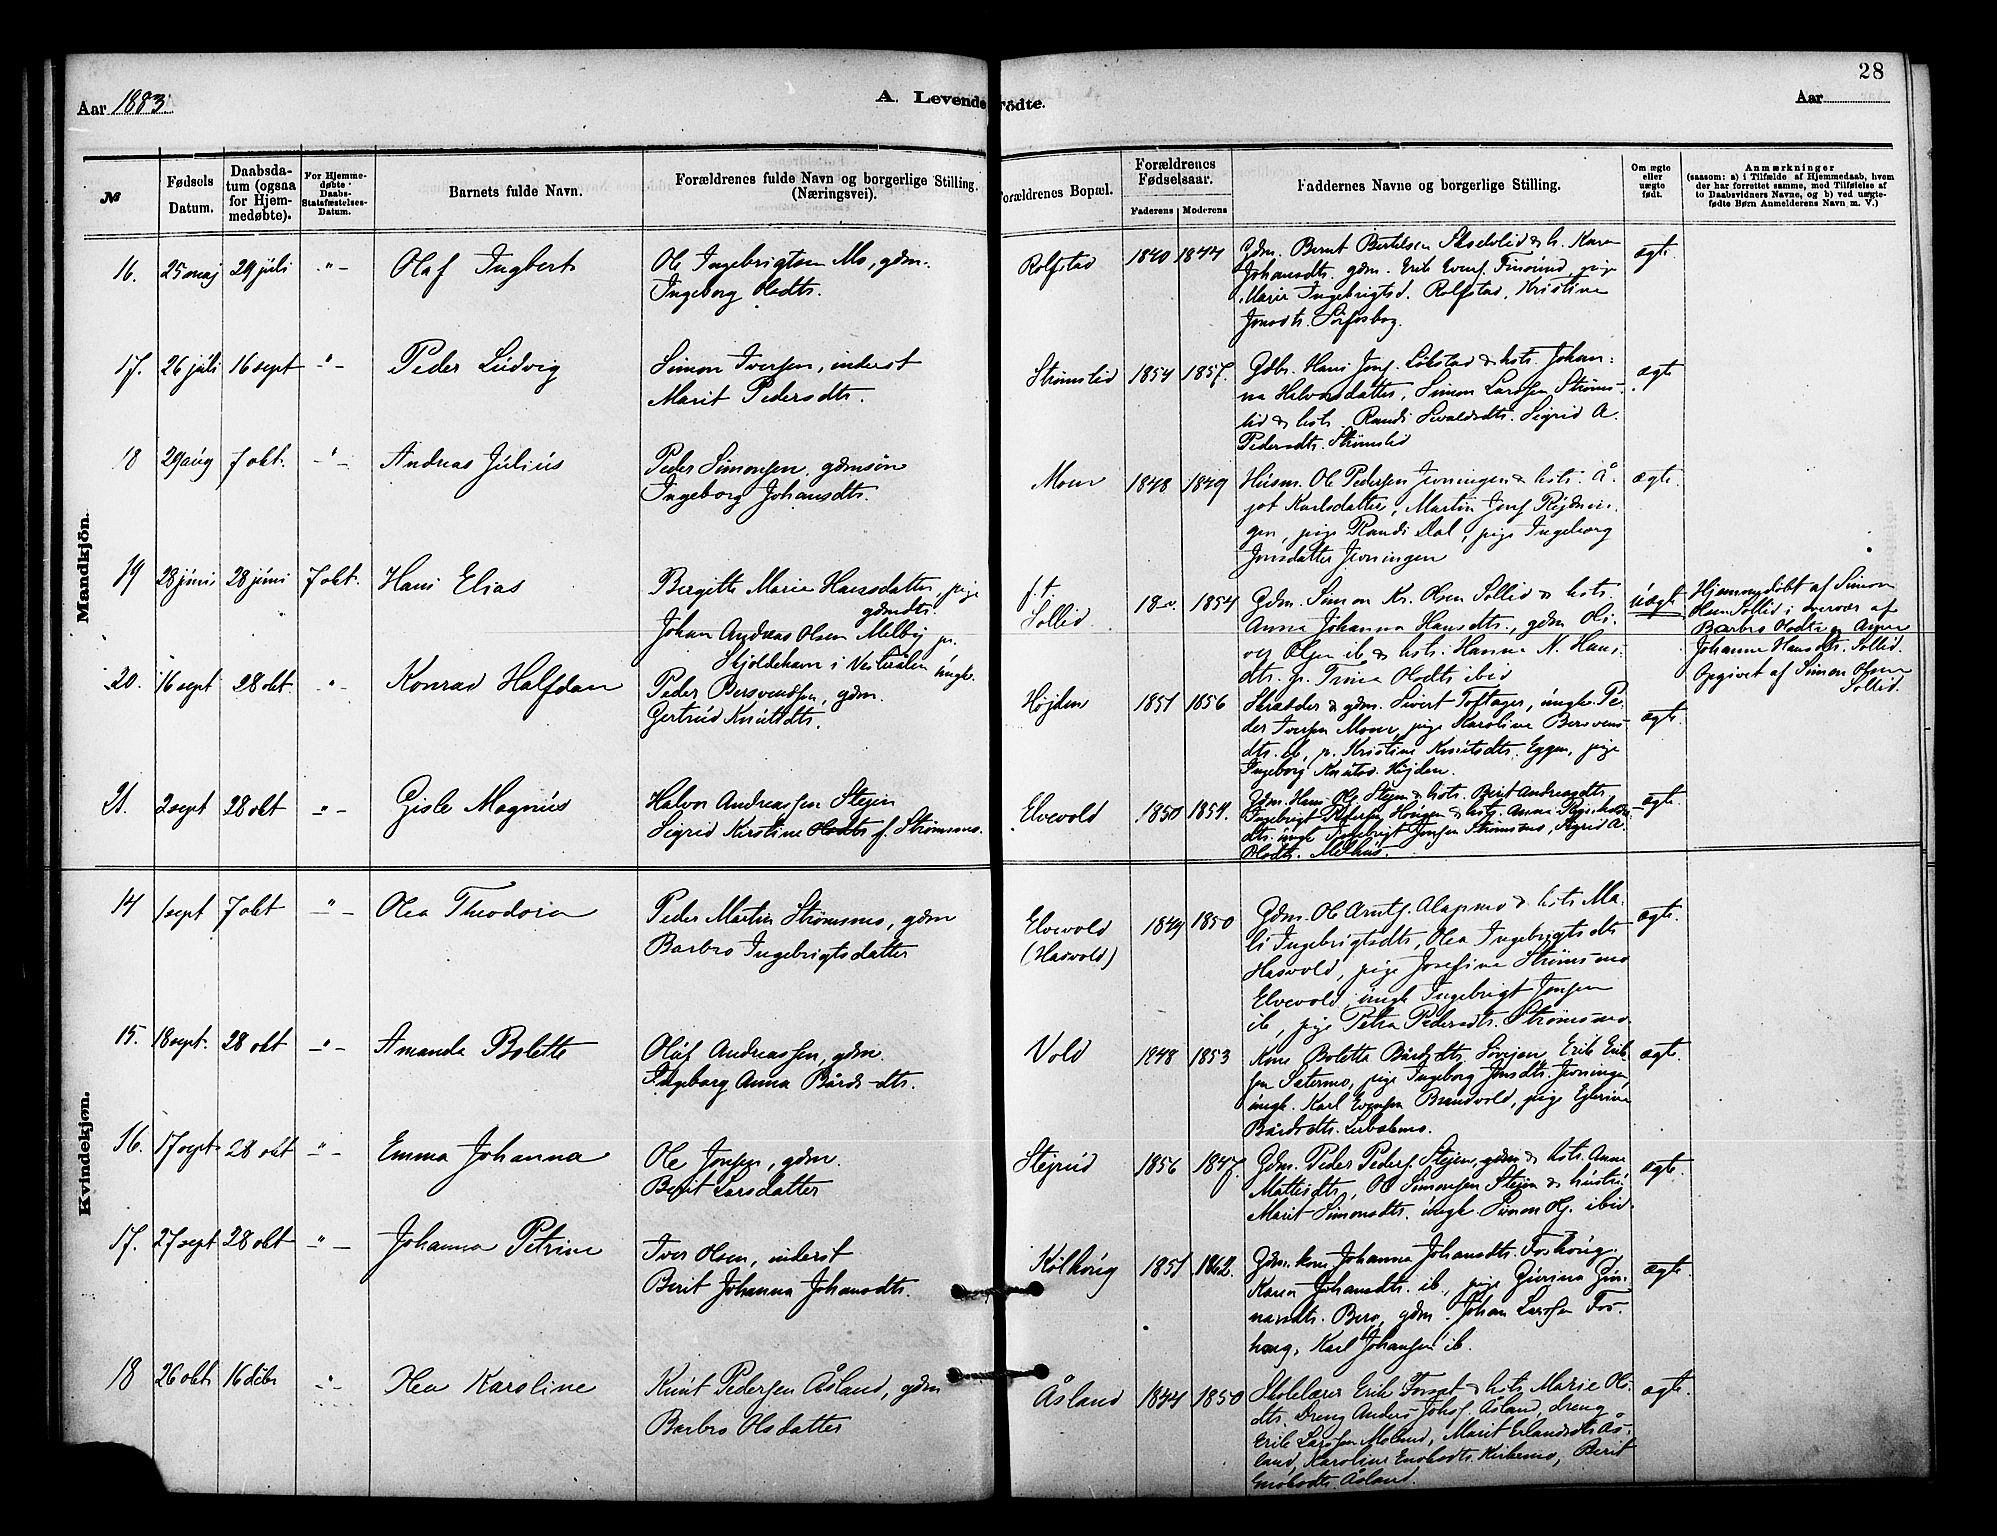 28
Aar 1883
A. Levende Födte.
Aar
№
Fødsels Datum.
Daabsdatum (ogsaa for Hjemmedøbte).
For Hjemmedøbte Daabs-Statsfæstelses-Datum.
Barnets fulde Navn.
Forældrenes fulde Navn og borgerlige Stilling. (Næringsvei).
Forældrenes Bopæl.
Forældrenes Fødselsaar.
Faderens
Moderens
Faddernes Navne og borgerlige Stilling.
Om ægte eller uægte født.
Anmærkninger
(saasom: a) i Tilfælde af Hjemmedaab, hvem
der har forrettet samme, med Tilføielse af
to Daabsvidners Navne, og b) ved uægte-
fødte Børn Anmelderens Navn m. V.)
Mandkjön.
16. 25 maj 29 juli -"- Olaf Ingbert
Ole Ingebrigtsen Mo, gdm.
Ingeborg Olsdtr.
Rolfstad 1840 1844
Gdm. Bernt Bertelsen & h. Karen
Johansdtr. gdm. Erik Evens. Finsund, pige
Marie Ingebrigtsd. Rolfstad, Kristine
Jonsdtr.
ægte
17. 26 juli 16 sept -"- Peder Ludvig
Simon Iversen, inderst
Marit Pedersdtr.
Strømslid 1854 1857.
Gdbr. Hans Jons. Løkstad & hstr. Johan-
na Halvorsdatter, Simon Larssen Strøms-
lid & hstr. Randi Sivaldsdtr. Sigrid A.
Pedersdtr. Strømslid
ægte
18 29 aug 7 okt. -"- Andreas Julius
Peder Simonsen, gdmsøn
Ingeborg Johansdtr.
Moen 1848 1849
Husm. Ole Pedersen Jevningen & hstr. Å-
got Karlsdatter, Martin Jons.
gen, pige Randi Dal, pige Ingeborg
Jonsdatter Jevningen
ægte.
19 28 juni 28 juni 7 okt. Hans Elias
Bergitte Marie Hansdatter, pige
gdmdtr.
Johan Andreas Olsen Melby fr.
Skjoldehavn i Vesterålen ungk.
f. t.
Sollid 18 1854
Gdm. Simon Kr. Olsen Sollid & hstr.
Anna Johanna Hansdtr., gdm Oli-
ver Olsen ib & hstr. Hanna N. Hans-
dtr. p. Trina Olsdtr ibid
uægte
Hjemmedøbt af Simon
Olsen Sollid i overvær af
Barbro Olsdtr og Anna
Johanna Hansdtr. Sollid.
Opgivet af Simon Olsen
Sollid.
20. 16 sept 28 okt. " Konrad Halfdan
Peder Bersvendsen, gdm.
Gertrud Knutsdtr.
Højden 1851 1856
Skrædder & gdm. Sivert Toftager, ungk. Pe-
der Iversen Moen, pige Karoline Bersvens-
dtr. ib, p. Kristine Knutsdtr. Eggen, pige
Ingeborg Knutsd. Højden.
ægte.
21. 2 sept 28 okt -"- Gisle Magnus
Halvor Andreassen Stejen
Sigrid Kirstine Olsdtr f. Strømsmo.
Elvevold 1850 1854.
Gdm. Hans Ols. Stejen & hstr. Berit Andreasdtr,
Ingebrigt Pedersen Haugen & hstr. Anna
dtr. ungk Ingebrigt Jonsen Strømsmo, Sigrid A.
Olsdtr. Melhus.
ægte.
Kvindekjøn.
14 1 sept 7 okt -"- Olea Theodora
Peder Martin Strømsmo, gdm
Barbro Ingebrigtsdatter
Elvevold
(Hasvold) 1849 1850
Gdm. Ole Arnts. Alapmo & hstr. Ma-
li Ingebrigtsdtr, Olea Ingebrigtsdtr
Hasvold, pige Josefine Strømsmo
Elvevold, ungk Ingebrigt Jonsen
ib, pige Petra Pedersdtr. Strømsmo.
ægte.
15. 18 sept. 28 okt -"- Amanda Bolette
Oluf Andreassen, gdm.
Ingeborg Anna Bårdsdtr.
Vold 1848 1853
Kone Boletta Bårdsdtr. Sørejen, Erik Erik-
sen Sætermo, pige Ingeborg Jonsdtr. Jevningen,
ungk. Karl Evensen Brandvold, pige
Bårdsdtr.
ægte.
16. 17 sept 28 okt "- Emma Johanna
Ole Jonsen, gdm.
Berit Larsdatter
Stejrud 1856 1847.
Gdm. Peder Peders. Stejen, gdm & hstr. Anne
Mattisdtr, Ole Simonsen Stejen & hustru
Marit Simonsdtr. ungk. Simon Ols. ibid.
ægte.
17. 27 sept 28 okt "- Johanna Petrine
Iver Olsen, inderst
Berit Johanna Johansdtr.
Kølhaug 1851 1862.
Gdm. kone Johanna Johansdtr. Foshaug,
Karen Johansdtr. ib., pige Gurina Gun-
narsdtr. Berg, gdm. Johan Larssen Fos-
haug, Karl Johansen ib.
ægte.
18 26 okt 16 debr -"- Olea Karoline
Knut Pedersen Åsland, gdm
Barbro Olsdatter
Åsland 1844 1850
Skolelærer Erik Fosmo & hstr Marie Ols-
dtr. Dreng Anders Johs. Åsland, dreng
Erik Larssen Moland, Marit Erlandsdtr Ås-
land, Karoline Enoksdtr. Kirkemo, Berit
Enoksdtr. Åsland.
ægte.